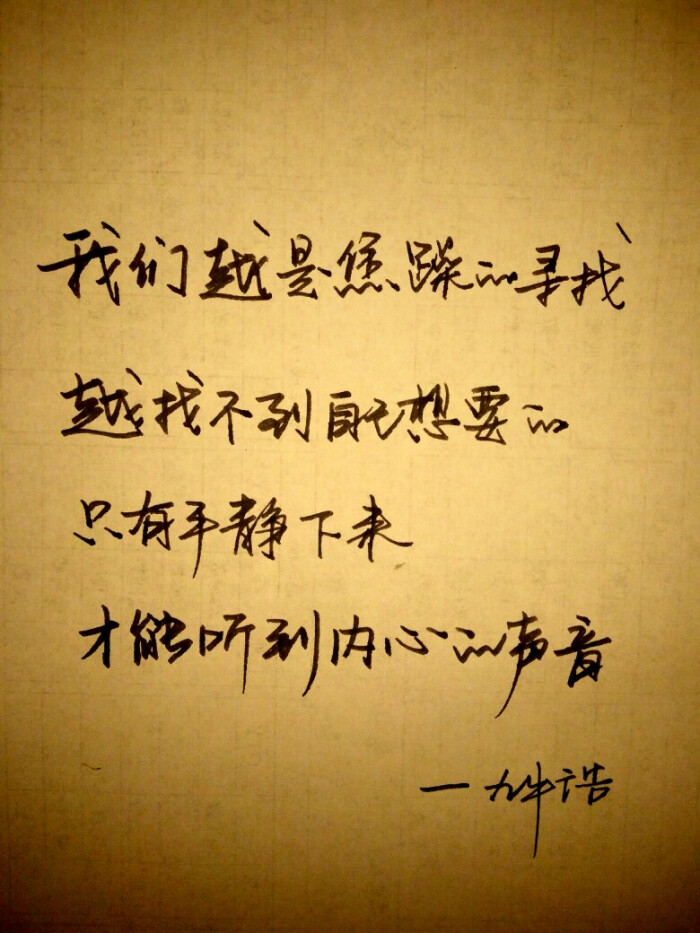 我们越是焦躁的寻找
越找不到自己想要的
只有平静下来
才能听到内心的声音
一九牛诰